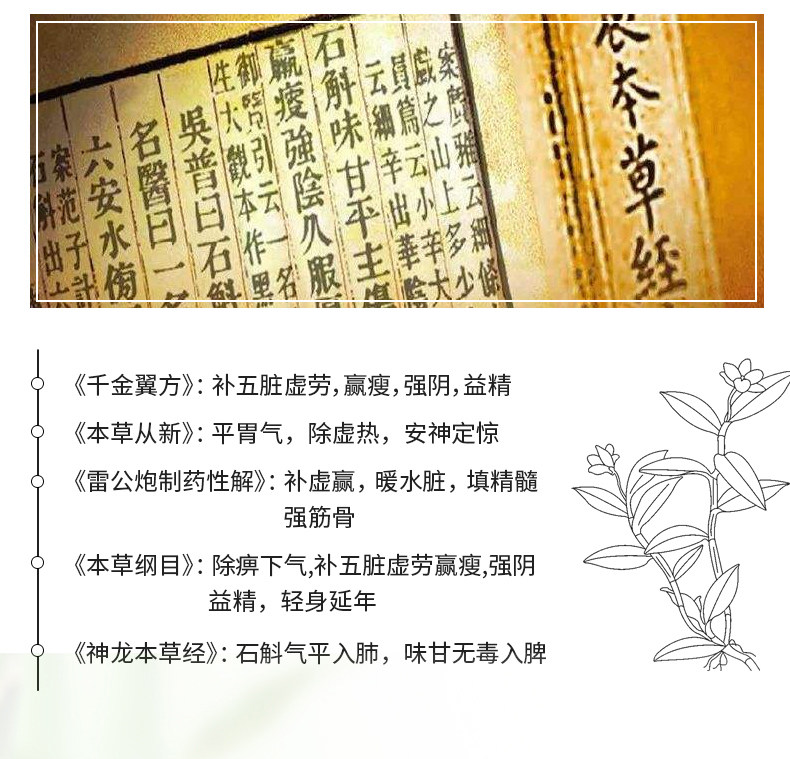 農本草經
案廣雅云細條
戲之山上多少
員篇云小辛大
云細辛出華陰
石斛味甘平主傷
羸瘦強陰久服厚
御覽引云一名
生大觀本作黑
吳普曰石斛
名醫曰一名
六安水傍
案范子計
石斛出六
《千金翼方》：补五脏虚劳，赢瘦，强阴，益精
《本草从新》：平胃气，除虚热，安神定惊
《雷公炮制药性解》：补虚赢，暖水脏，填精髓
强筋骨
《本草纲目》：除痹下气,补五脏虚劳赢瘦,强阴
益精，轻身延年
《神龙本草经》：石斛气平入肺，味甘无毒入脾